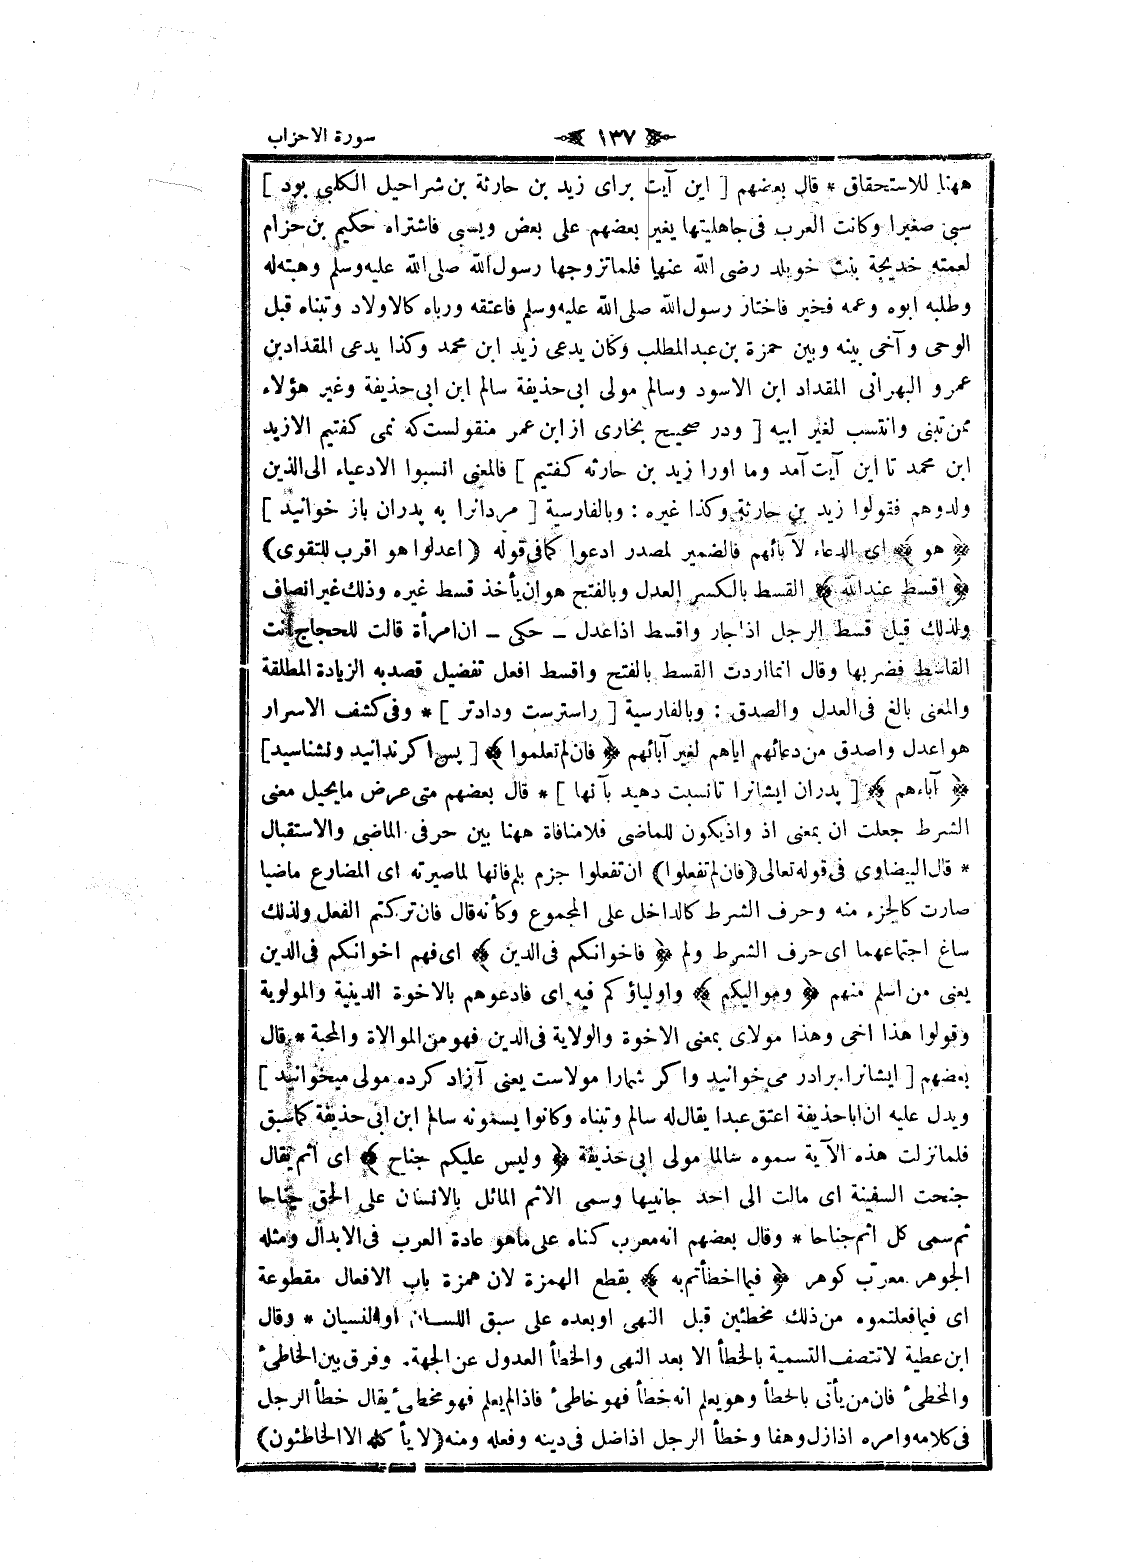 سورة الاحزاب ﴿ ١٣٧ ﴾
ههنا للاستحقاق * قال بعضهم [ اين آيت براى زيد بن حارثة بن شراحيل الكلبى بود ]
سبى صغيرا وكانت العرب فى جاهليتها يغير بعضهم على بعض ويسبى فاشتراه حكيم بن حزام
لعمته خديجة بنت خويلد رضى الله عنها فلما تزوجها رسول الله صلى الله عليه وسلم وهبته له
وطلبه ابوه وعمه فخير فاختار رسول الله صلى الله عليه وسلم فاعتقه ورباه كالاولاد وتبناه قبل
الوحى وآخى بينه وبين حمزة بن عبدالمطلب وكان يدعى زيد ابن محمد وكذا يدعى المقداد بن
عمرو البهرانى المقداد ابن الاسود وسالم مولى ابى حذيفة سالم ابن ابى حذيفة وغير هؤلاء
ممن تبنى وانتسب لغير ابيه [ ودر صحيح بخارى از ابن عمر منقولست كه نمى كفتيم الازيد
ابن محمد تا اين آيت آمد وما اورا زيد بن حارثه كفتيم ] فالمعنى انسبوا الادعياء الى الذين
ولدوهم فقولوا زيد بن حارثة وكذا غيره : وبالفارسية [ مردانرا به پدران باز خوانيد ]
﴿ هو ﴾ اى الدعاء لآبائهم فالضمير لمصدر ادعوا كما فى قوله ( اعدلوا هو اقرب للتقوى)
﴿ اقسط عندالله ﴾ القسط بالكسر العدل وبالفتح هو ان يأخذ قسط غيره وذلك غير انصاف
ولذلك قيل قسط الرجل اذا جار واقسط اذا عدل ـ حكى ـ ان امرأة قالت للحجاج أنت
القاسط فضربها وقال انما اردت القسط بالفتح واقسط افعل تفضيل قصد به الزيادة المطلقة
والمعنى بالغ فى العدل والصدق : وبالفارسية [ راسترست ودادتر ] * وفى كشف الاسرار
هو اعدل واصدق من دعائهم اياهم لغير آبائهم ﴿ فان لم تعلموا ﴾ [ پس اكر ندانيد ونشناسيد]
﴿ آباءهم ﴾ [ پدران ايشانرا تانسبت دهيد بآنها ] * قال بعضهم متى عرض ما يحيل معنى
الشرط جعلت ان بمعنى اذ واذ يكون للماضى فلا منافاة ههنا بين حرفى الماضى والاستقبال
* قال البيضاوى فى قوله تعالى (فان لم تفعلوا) ان تفعلوا جزم بلم فانها لما صيرته اى المضارع ماضيا
صارت كالجزء منه وحرف الشرط كالداخل على المجموع وكأنه قال فان تركتم الفعل ولذلك
ساغ اجتماعهما اى حرف الشرط ولم ﴿ فاخوانكم فى الدين ﴾ اى فهم اخوانكم فى الدين
يعنى من اسلم منهم ﴿ ومواليكم ﴾ واولياؤكم فيه اى فادعوهم بالاخوة الدينية والمولوية
وقولوا هذا اخى وهذا مولاى بمعنى الاخوة والولاية فى الدين فهو من الموالاة والمحبة * قال
بعضهم [ ايشانرا برادر مى خوانيد واكر شمارا مولاست يعنى آزاد كرده مولى ميخوانيد ]
ويدل عليه ان اباحذيفة اعتق عبدا يقال له سالم وتبناه وكانوا يسمونه سالم ابن ابى حذيفة كما سبق
فلما نزلت هذه الآية سموه سالما مولى ابى حذيفة ﴿ وليس عليكم جناح ﴾ اى اثم يقال
جنحت السفينة اى مالت الى احد جانبيها وسمى الاثم المائل بالانسان على الحق جناحا
ثم سمى كل اثم جناحا * وقال بعضهم انه معرب كناه على ما هو عادة العرب فى الابدال ومثله
الجوهر معرّب كوهر ﴿ فيما اخطأتم به ﴾ بقطع الهمزة لان همزة باب الافعال مقطوعة
اى فيما فعلتموه من ذلك مخطئين قبل النهى او بعده على سبق اللسان او النسيان * وقال
ابن عطية لا تتصف التسمية بالخطأ الا بعد النهى والخطأ العدول عن الجهة . وفرق بين الخاطئ
والمخطئ فان من يأتى بالخطأ وهو يعلم انه خطأ فهو خاطئ فاذا لم يعلم فهو مخطئ يقال خطأ الرجل
فى كلامه وامره اذا زل وهفا وخطأ الرجل اذا ضل فى دينه وفعله ومنه (لا يأكله الا الخاطئون)